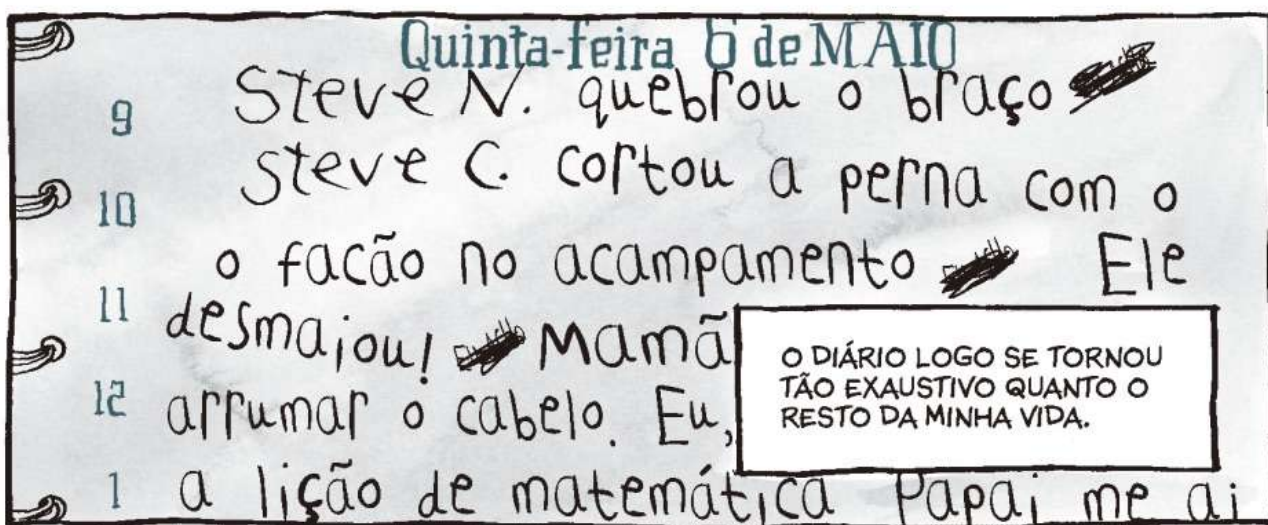 Quinta-feira 6 de MAIO
9 Steve N. quebrou o braço
Steve C. cortou a perna com o
10
o facão no acampamento Ele
11 desmaiou! Mamã
12 arrumar o cabelo. Eu,
1 a lição de matemática Papai me aj
O DIÁRIO LOGO SE TORNOU
TÃO EXAUSTIVO QUANTO O
RESTO DA MINHA VIDA.